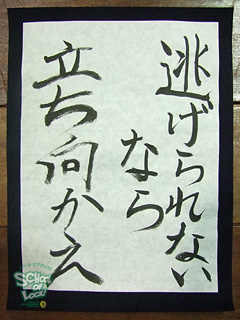 逃げられない
なら
立ち向かえ
SCHOOL
OF
LOCK!